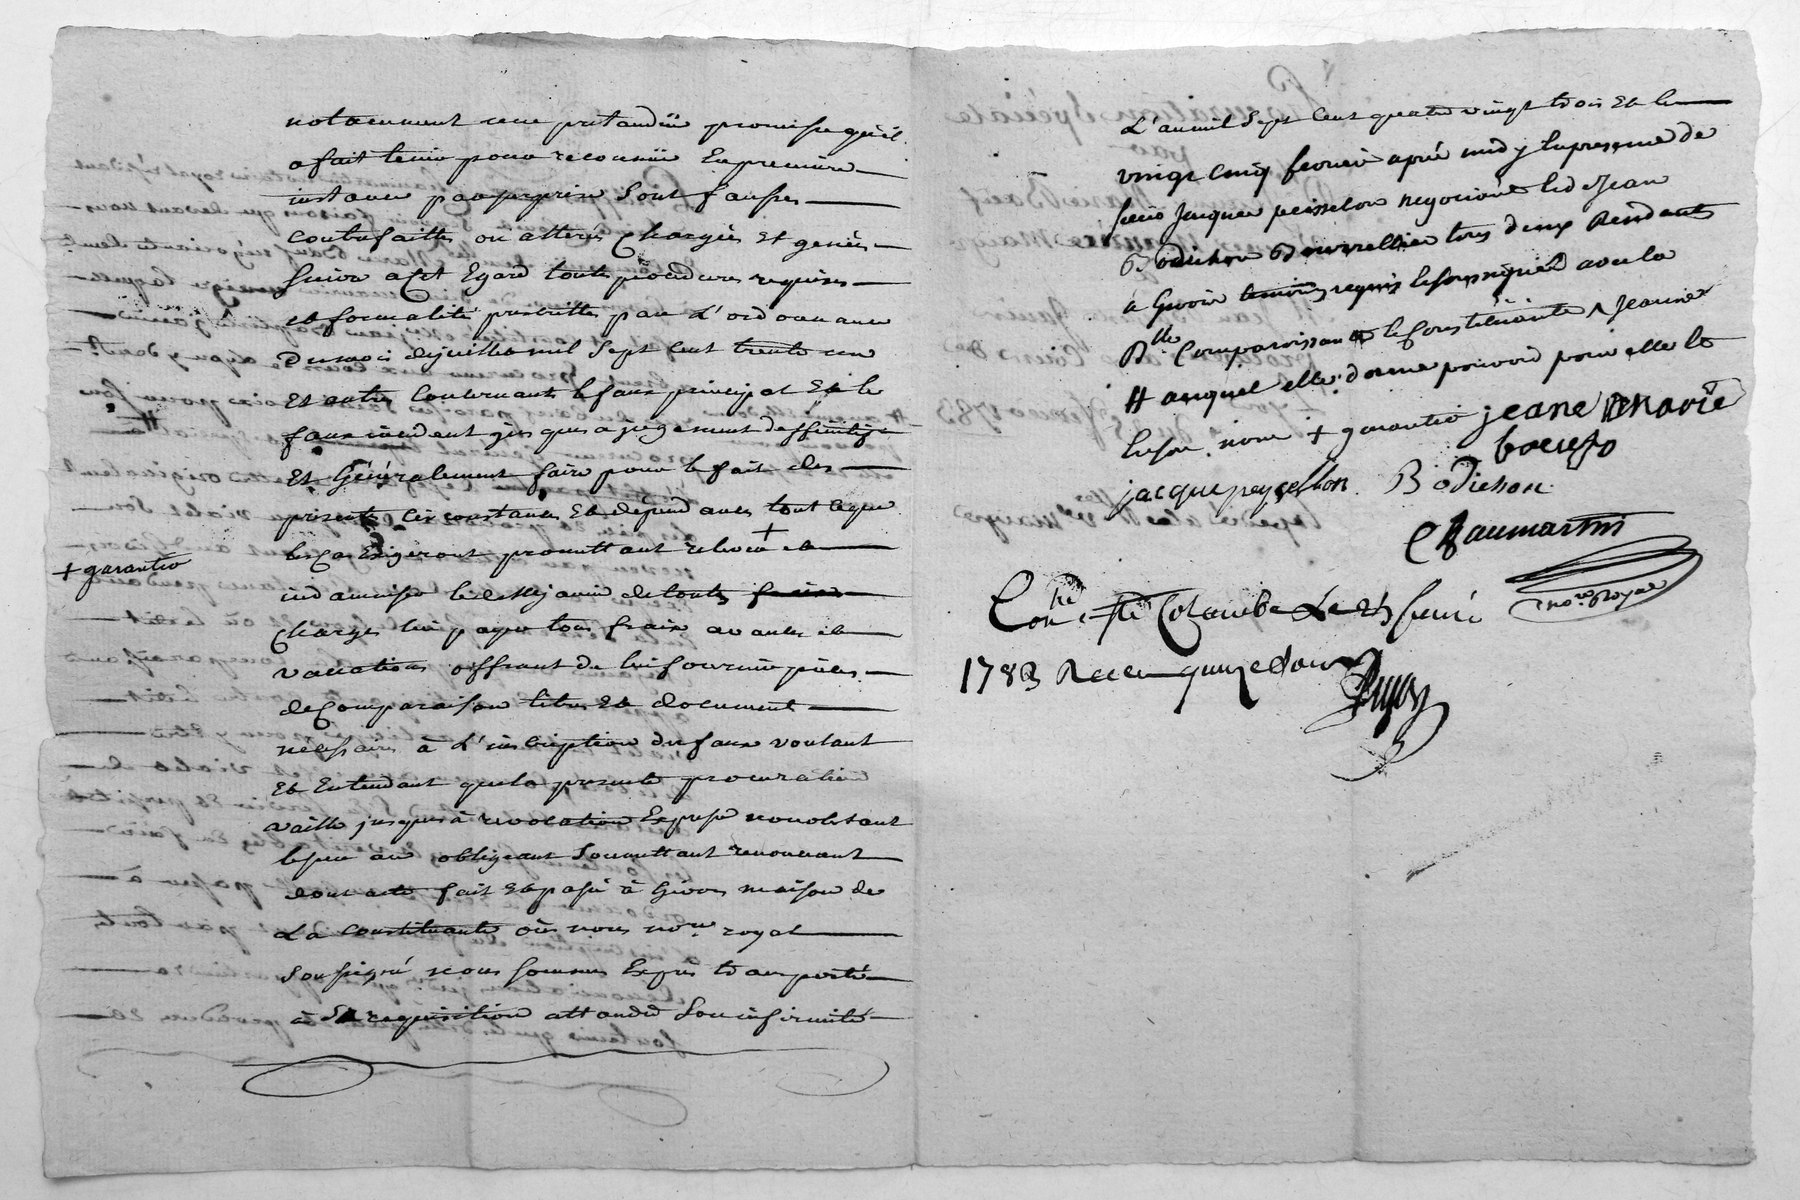 notamment une prétandüe promesse qu'il
a fait tenir pour reconnüe En première
instance par surprise Sont fausses
Contrefaittes ou altérés Chargées Et
Suivre a Cet Egard toutes procédures requises
et formalité prescrittes par L'ordonnance
Du mois dejuillet mil Sept Cent trente
Et autres Concernants le faux principal Et le
faux incident jusques a jugement deffinitif
Et Généralement faire pour le fait des
présentes circonstances Et dépendances tout ceque
les Cas Exigeront promettant relever + et
+ garantir
indamniser led Me janin de toutes
Charges lui payer tous frais avances et
vacations offrant de lui fournir pièces
de Comparaison titres Et document
nécéssaires à L'inscription du faux voulant
Et Entendant que la présente procuration
vaille jusques à révocation Expresse nonobstant
le sur an obligeant Soumettant renoncant
dont acte fait Et passé à Givors maison de
La Constituante où nous nore royal
Soussigné nous sommes Exprès transporté
à Sa requisition attandu Son infirmité
L'an mil Sept Cent quatre vingt trois Et le
vingt cinq fevrier après midy En présence de
Sieur Jacques peisselon negociant Et de Jean
Bodichon Bourrellier tous deux Residants
à Givors temoins requis Et soussignés avec la
Dlle Comparoissante Et Constituante Jeanne
# auquel elle donne pouvoir pour elle Et
En son nom + garantir jeane marie
boeuf
jacque peysellon Bodichon
Chaumartin
nore Royal
Conlle à Ste Colombe Le 25 fevrier
1783 Recu quinze sous